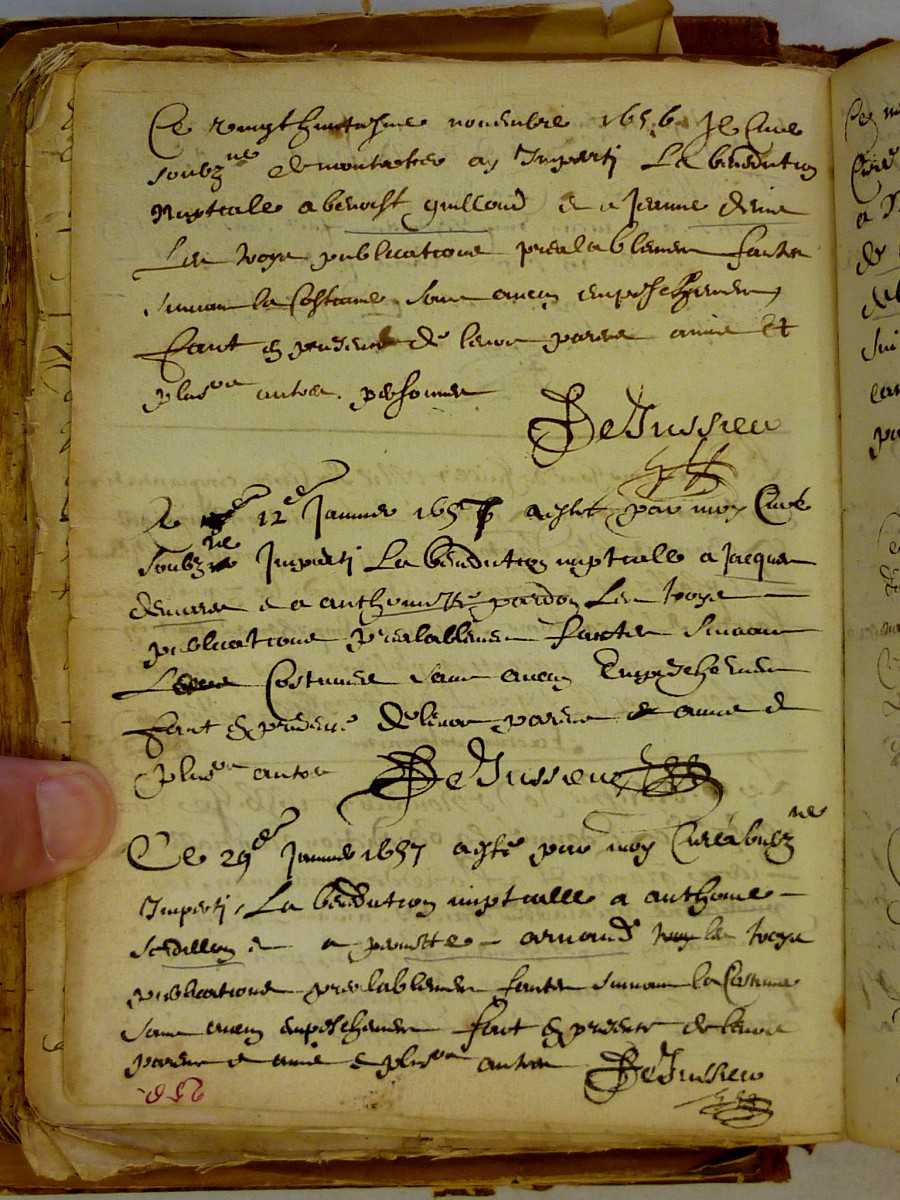 Ce vingthuictiesme novembre 1656 Je Cure
soubz.ne de montrotier ay Imparti La benediction
Nuptialle a benoist guilloud e a Jeanne
Les troys publications prealablement faictes
suivant la Costume sans aucun empeschement
faict en presence de leurs parens amis Et
plusrs autres personnes
DeJussieu
Ce 12e Janvier 1657 a esté par moy Curé
soubz.ne Imparti La benediction nuptialle a Jacques
e a anthoinette pardon Les troys
publications prealablement faictes suivant
Costumes sans aucun Empeschement
faict en presence de leurs parens e amis e
plusrs autres DeJussieu
Ce 29e Janvier 1657 a esté par moy Curé soubz.ne
Imparti La benediction nuptialle a anthoine
e a arnaud les troys
publications prealablement faictes suivant la Costume
sans aucun empeschement faict en presence de leurs
parens e amis e plusrs autres DeJussieu